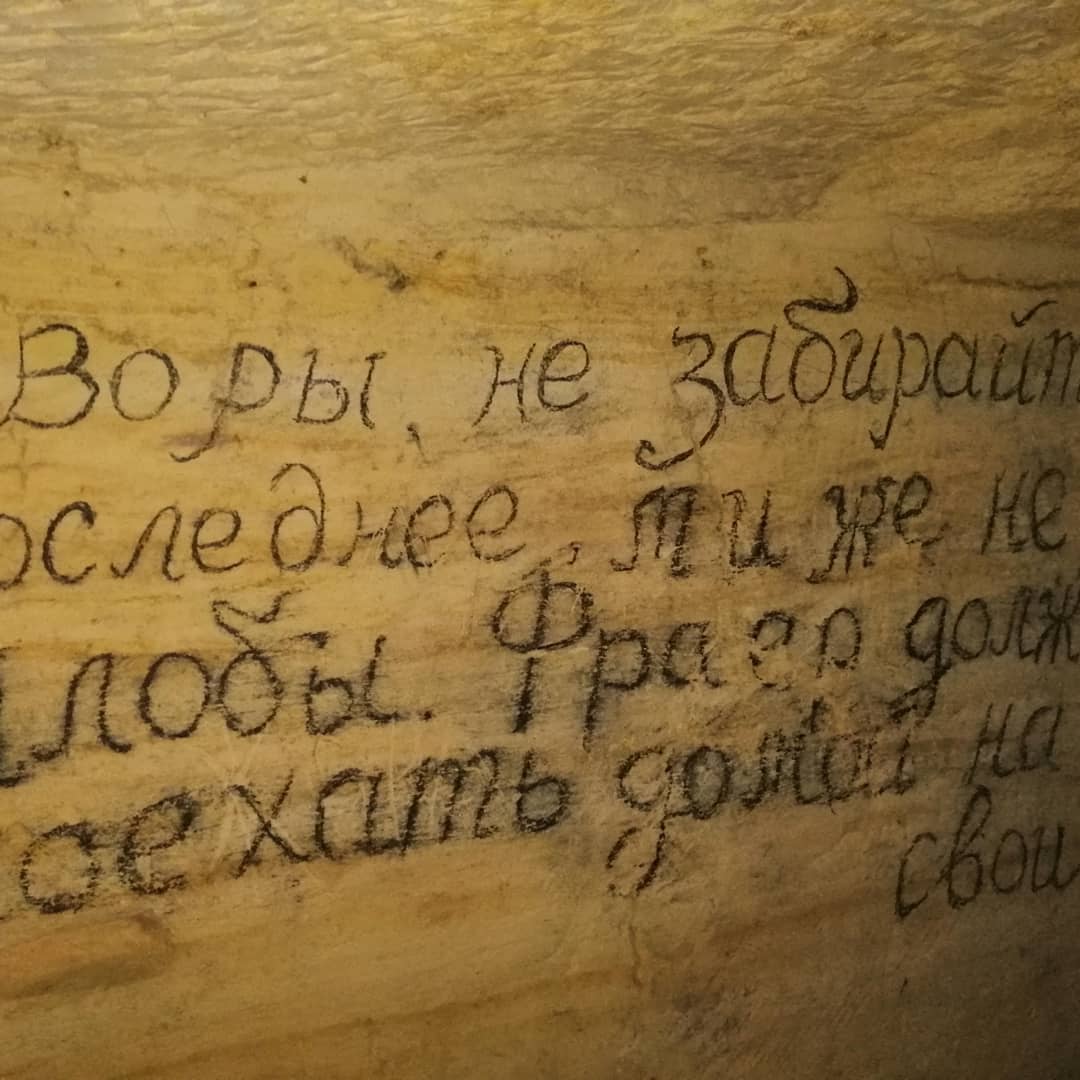 Воры, не забирайт
оследнее, ти же не
лобы. Фраер долж
оехать домой на
свои